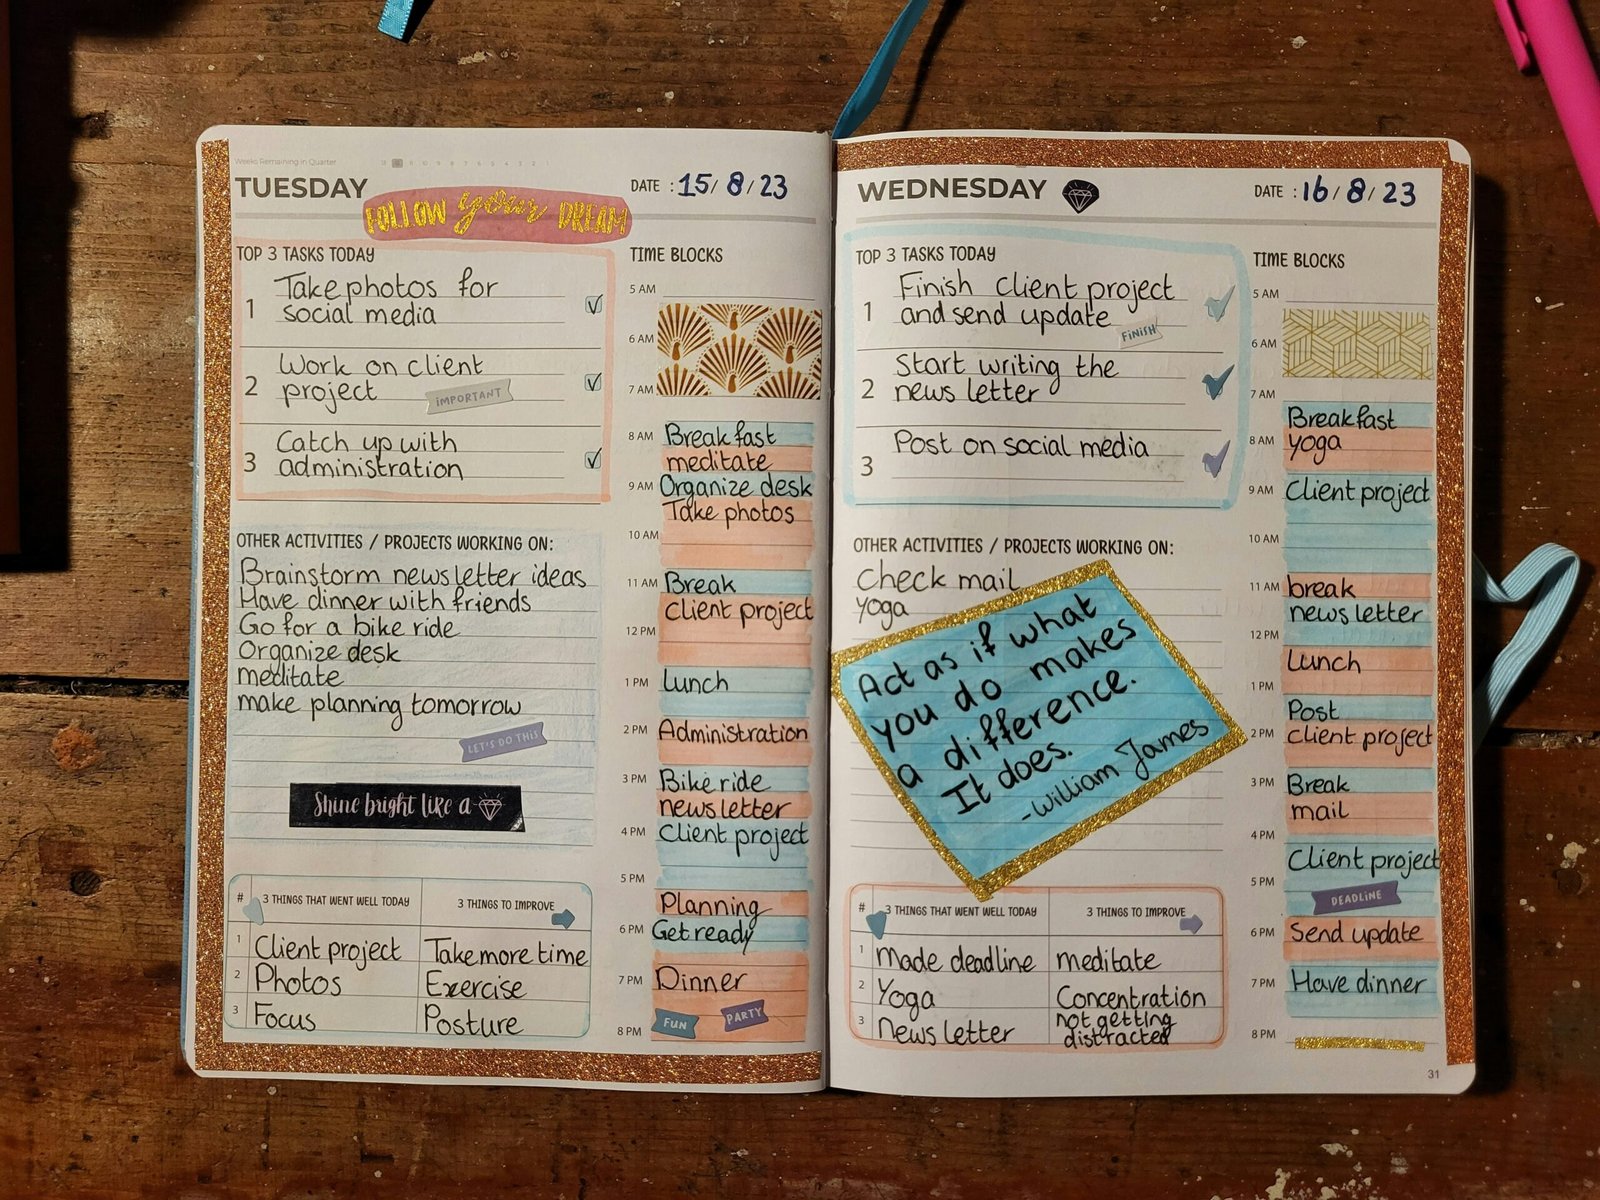 Weeks Remaining in Quarter
TUESDAY
FOLLOW your DREAM
DATE : 15/ 8 / 23
TOP 3 TASKS TODAY
1 Take photos for
social media
2 Work on client
project
IMPORTANT
3 Catch up with
administration
OTHER ACTIVITIES / PROJECTS WORKING ON:
Brainstorm news letter ideas
Have dinner with friends
Go for a bike ride
Organize desk
meditate
make planning tomorrow
LET'S DO THIS
Shine bright like a
# 3 THINGS THAT WENT WELL TODAY 3 THINGS TO IMPROVE
1 Client project Take more time
2 Photos Exercise
3 Focus Posture
TIME BLOCKS
5 AM
6 AM
7 AM
8 AM Breakfast
meditate
9 AM Organize desk
Take photos
10 AM
11 AM Break
Client project
12 PM
1 PM Lunch
2 PM Administration
3 PM Bike ride
news letter
4 PM Client project
5 PM
Planning
6 PM Get ready
7 PM Dinner
FUN PARTY
8 PM
WEDNESDAY
DATE : 16/ 8 / 23
TOP 3 TASKS TODAY
1 Finish client project
and send update
FINISH
2 Start writing the
news letter
3 Post on social media
OTHER ACTIVITIES / PROJECTS WORKING ON:
Check mail
yoga
Act as if what
you do makes
a difference.
It does.
-William James
# 3 THINGS THAT WENT WELL TODAY 3 THINGS TO IMPROVE
1 Made deadline meditate
2 Yoga Concentration
3 News letter not getting
distracted
TIME BLOCKS
5 AM
6 AM
7 AM
Breakfast
8 AM yoga
9 AM Client project
10 AM
11 AM break
news letter
12 PM
Lunch
1 PM
Post
2 PM client project
3 PM Break
mail
4 PM
Client project
5 PM
DEADLINE
6 PM Send update
7 PM Have dinner
8 PM
31